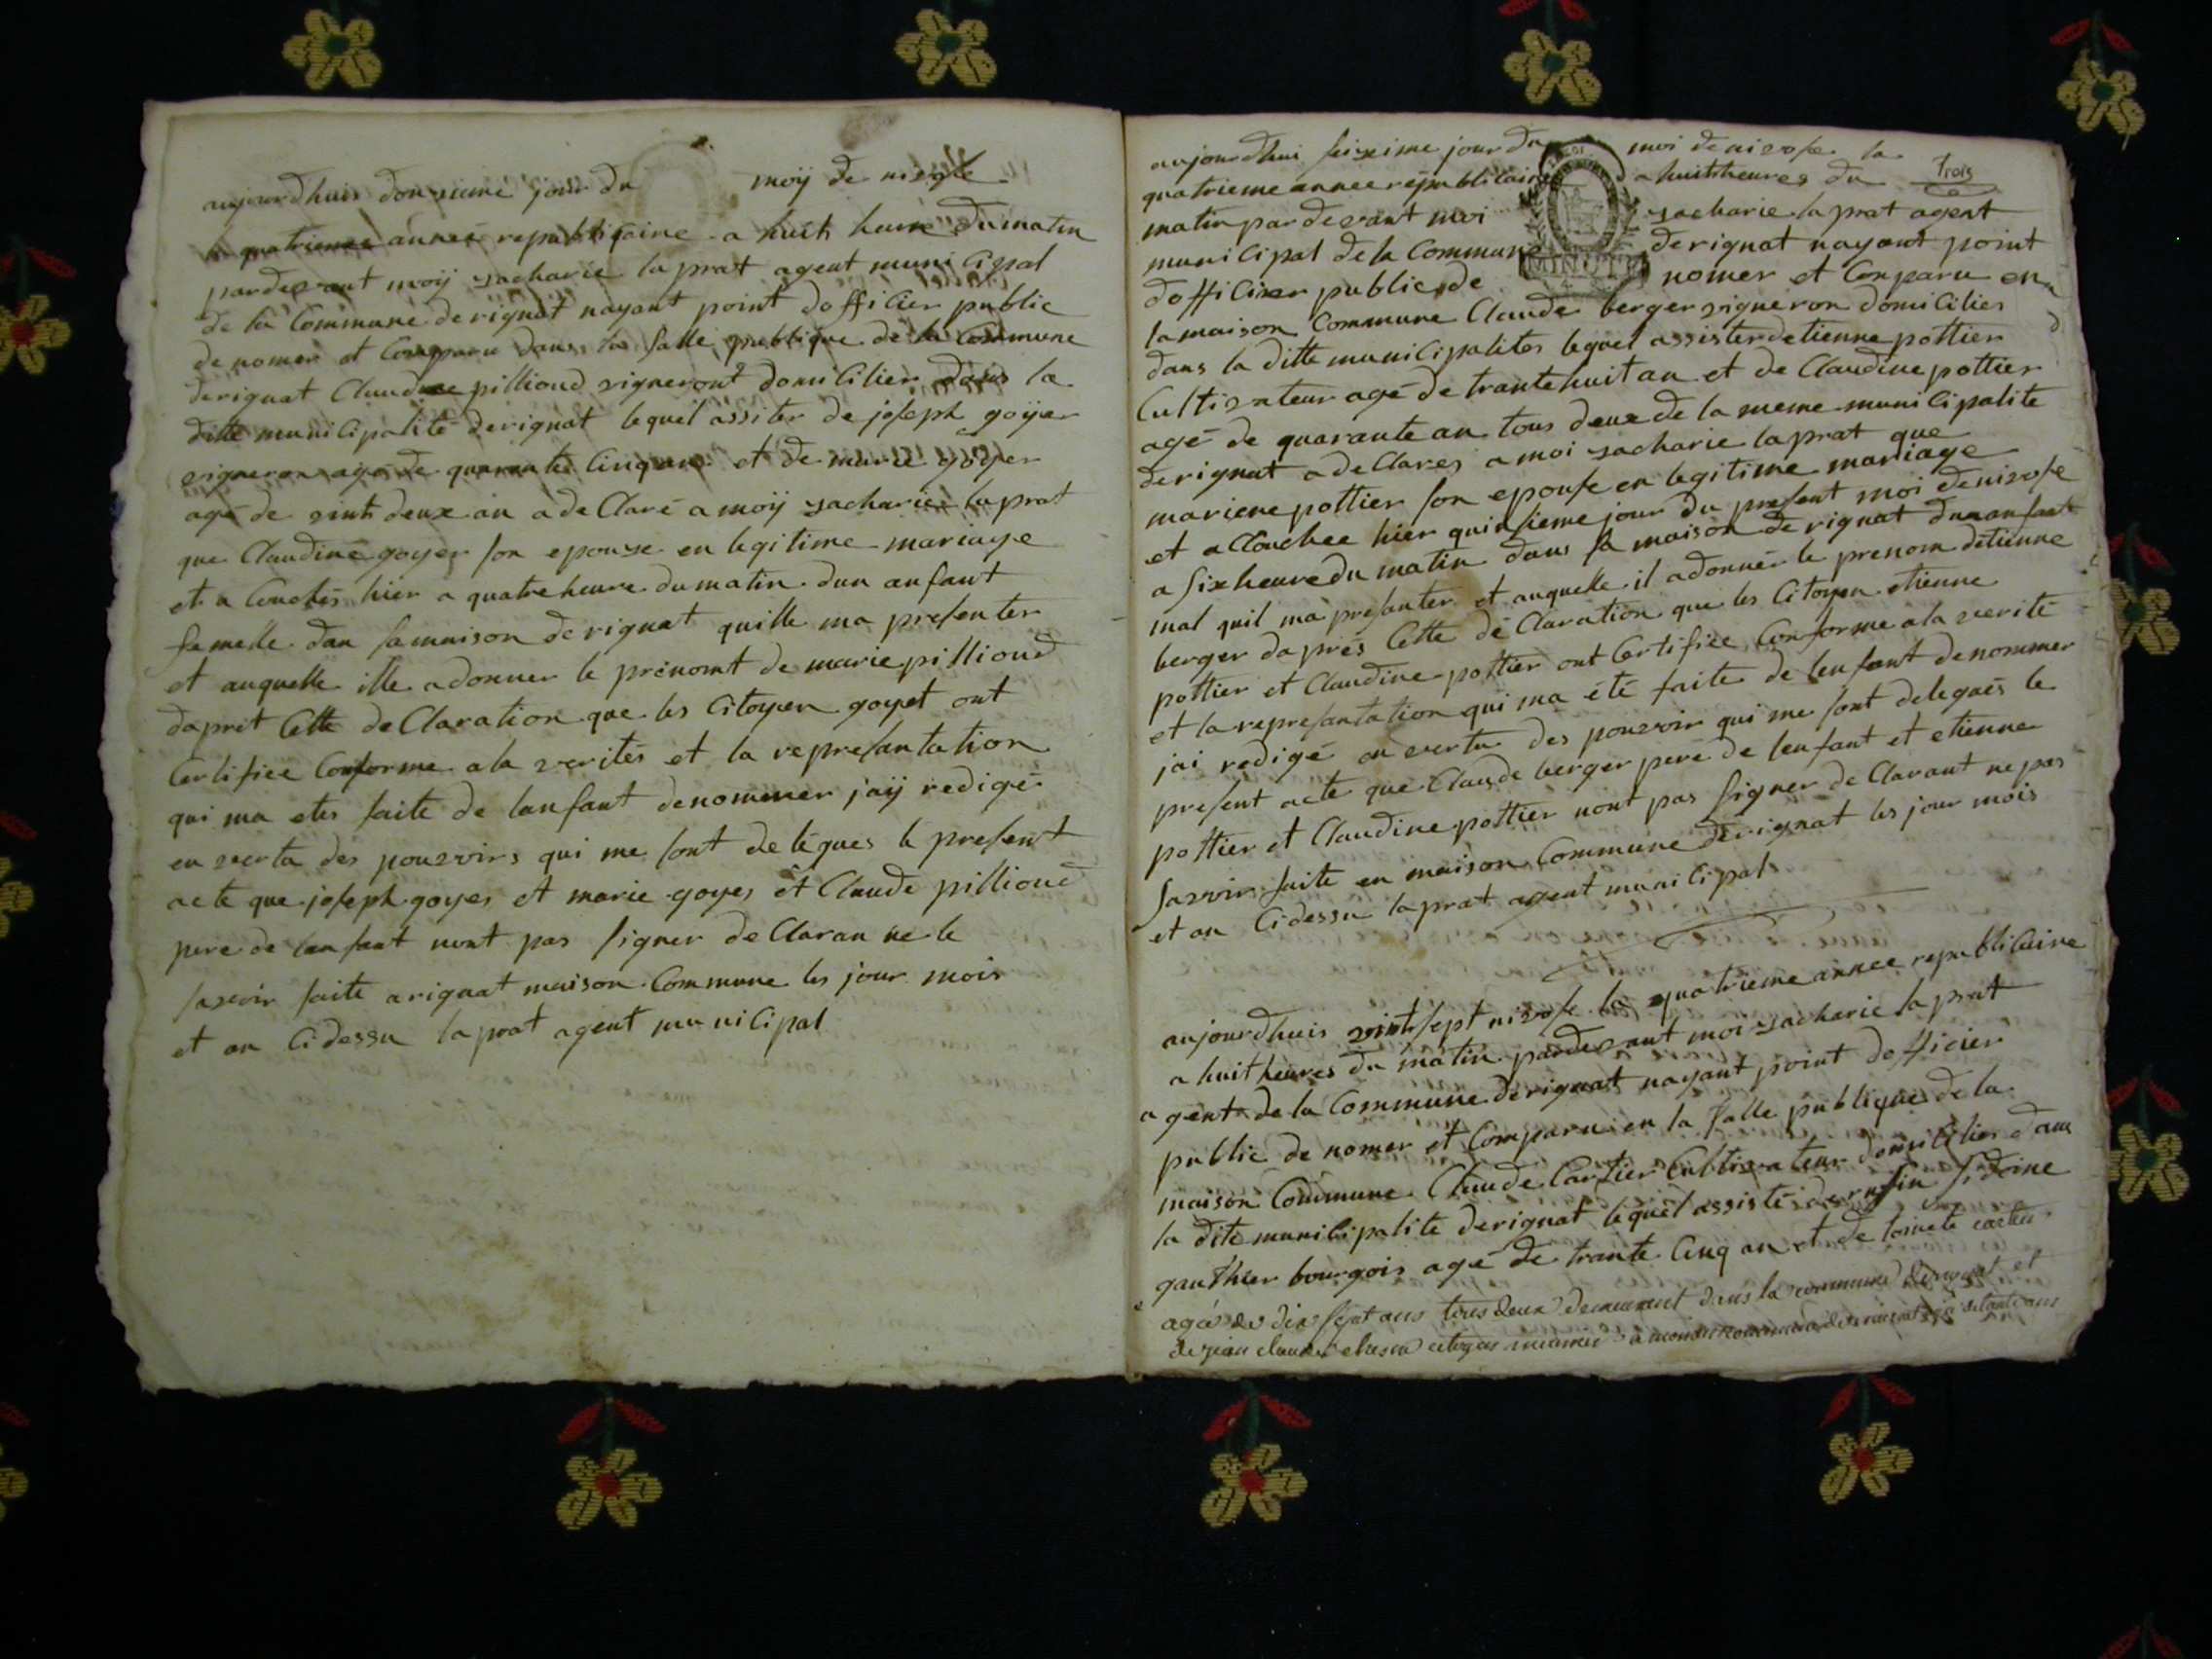 aujourdhuis donzieme jour du moÿ de nivose
la quatrieme année republicaine a huit heure du matin
pardevant moÿ zacharie laprat agent municipal
de la Commune derignat nayant point dofficier public
de nomer et Comparu dans la salle publique de la Commune
derignat Claude pillioud vigneront domicilier dans la
ditte municipalité derignat lequel assiter de joseph goÿer
vigneron agé de quarante Cinq ans et de marie goÿer
agé de vint deux an a de Claré a moÿ zacharie laprat
que Claudine goyer son epouze en legitime mariage
et a Couchés hier a quatre heure du matin dun anfant
femelle dan sa maison derignat quille ma presenter
et auquelle ille a donner le prénomt de marie pillioud
daprèt Cette de Claration que les Citoyen goyet ont
Certifiee Conforme a la verités et la represantation
qui ma etes faite de lanfant denommer jaÿ redigé
en vertu des pouvoirs qui me sont delégues le present
acte que joseph goyer et marie goyer et Claude pillioud
pere de lanfant nont pas signer de Claran ne le
savoir faite a rignat maison Commune les jour mois
et an Cidessu laprat agent municipal
aujourdhui seizieme jour du moi de nivose la
trois
quatrieme annee républicaine a huit heures du
matin pardevant moi zacharie laprat agent
municipal de la Commune derignat nayant point
dofficier public de nomer et Conparu en
MINUTE
la maison Commune Claude berger vigneron domicilies
dans la ditte municipalites lequel assister detienne pottier
Cultivateur agé de trante huit an et de Claudine pottier
agé de quarante an tous deux de la meme municipalite
derignat a de Clares a moi zacharie laprat que
mariene pottier son epouse en legitime mariage
et a Couchee hier quinsieme jour du present moi de nivose
a six heure du matin dans sa maison de rignat dun anfant
mal quil ma presanter et auquelle il a donnér le prenom detienne
berger daprés Cette dé Claration que les Citoyen etienne
pottier et Claudine pottier ont Certifiee Conforme a la verité
et la represantation qui ma été faite de lenfant denommer
jai redigé en vertu des pouvoir qui me sont delegués le
present acte que Claude berger pere de lenfant et etienne
pottier et Claudine pottier nont pas signer de Clarant ne pas
savoir faite en maison Commune derignat les jour mois
et an Cidessu laprat agent municipal
aujourdhuis vint sept nivose la quatrieme annee republicaine
a huit heures du matin pardevant moi zacharie laprat
agent de la Commune derignat nayant point dofficier
public de nomer et Comparu en la salle publique de la
maison Commune Claude Cartier Cultivateur domicilier dans
la dite municipalite derignat lequel assisté de
gauthier bourgois agé de trante Cinq an et de
agée de dix sept ans tous deux demeurant dans la commune derignat et
de jean claude citoyen